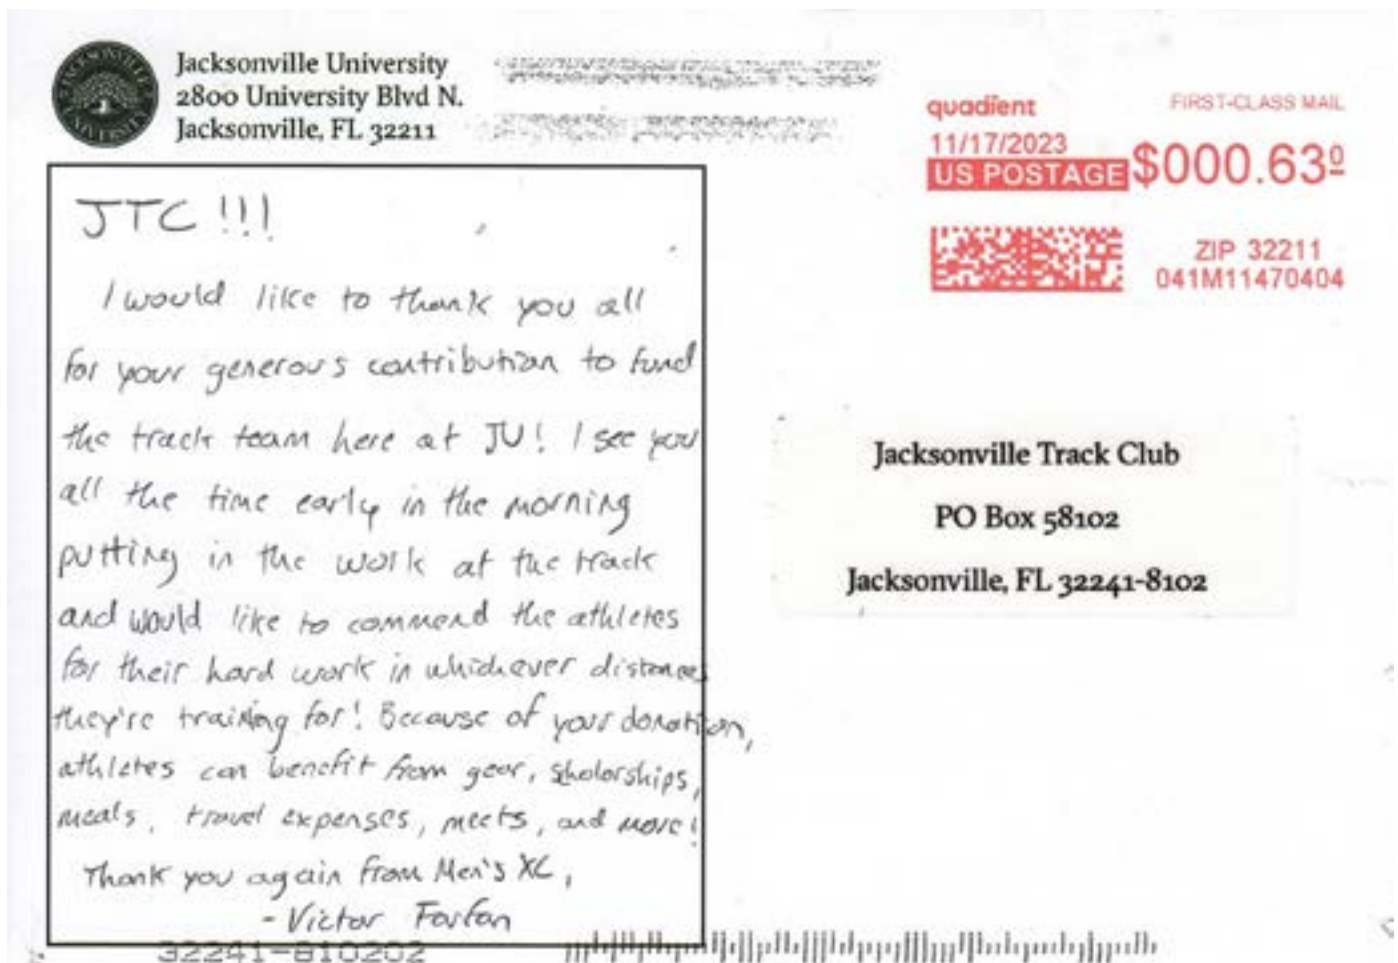 JACKSONVILLE UNIVERSITY
Jacksonville University
2800 University Blvd N.
Jacksonville, FL 32211
quadient
FIRST-CLASS MAIL
11/17/2023
US POSTAGE $000.63⁰
ZIP 32211
041M11470404
JTC !!!
I would like to thank you all
for your generous contribution to fund
the track team here at JU! I see you
all the time early in the morning
putting in the work at the track
and would like to commend the athletes
for their hard work in whichever distances
they're training for! Because of your donation,
athletes can benefit from gear, scholorships,
meals, travel expenses, meets, and more!
Thank you again from Men's XC,
- Victor Farfan
Jacksonville Track Club
PO Box 58102
Jacksonville, FL 32241-8102
32241-810202